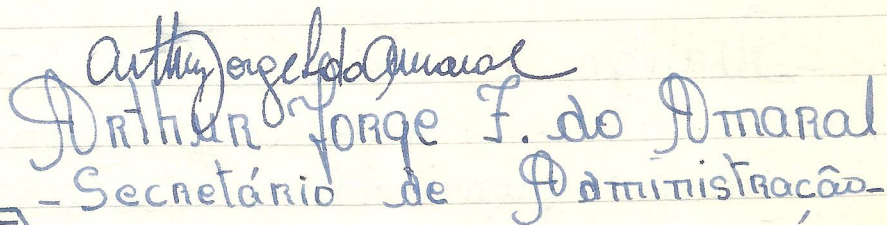 Arthur Jorge F do Amaral
Arthur Jorge F. do Amaral
- Secretário de Administração -